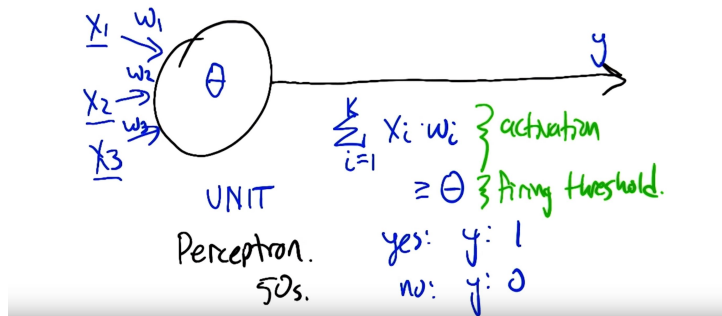 X1 w1
w2
X2
w3
X3
θ
y
K
∑ Xi · wi } activation
i=1
≥ θ } firing threshold.
UNIT
Perceptron.
50s.
yes: y: 1
no: y: 0